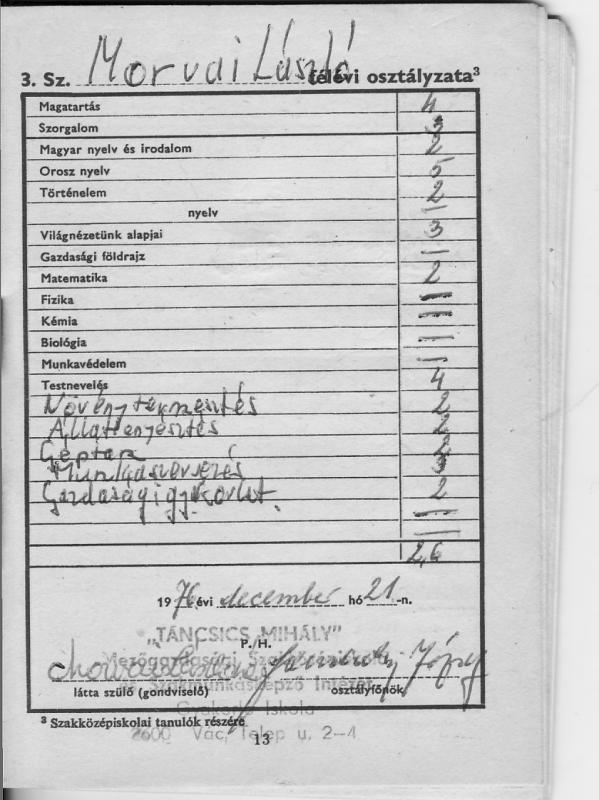 3. Sz. Morvai László félévi osztályzata³
Magatartás 4
Szorgalom 3
Magyar nyelv és irodalom 2
Orosz nyelv 5
Történelem 2
nyelv —
Világnézetünk alapjai 3
Gazdasági földrajz —
Matematika 2
Fizika —
Kémia —
Biológia —
Munkavédelem —
Testnevelés 4
Növénytermesztés 2
Állattenyésztés 2
Géptan 2
Munkaszervezés 3
Gazdasági gyakorlat. 2
—
—
2,6
1976 évi december hó 21-n.
P./H.
"TÁNCSICS MIHÁLY"
Mezőgazdasági
József
látta szülő (gondviselő) osztályfőnök
Szakmunkásképző Intézet
Gyakorló Iskola
³ Szakközépiskolai tanulók részére
2600 Vác, Telep u. 2-4
13